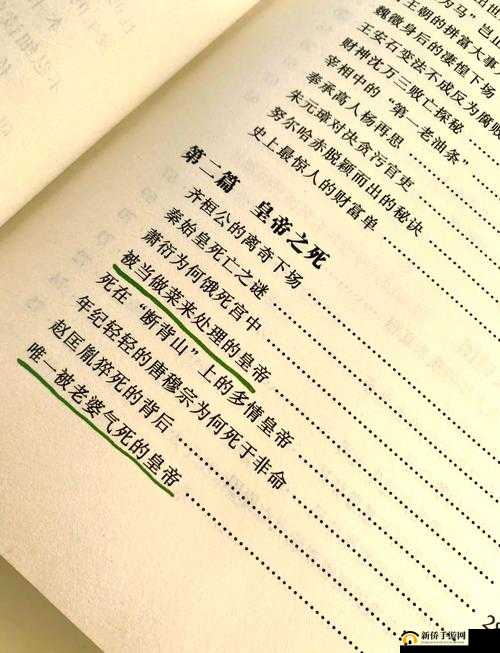 为马”当
王朝的拼富大事
魏徵身后的凄惶下场
王安石变法不成反为腐败
财神沈万三败亡探秘
宰相中的“第一老油条”
奉承高人杨再思
朱元璋对决贪污官吏
努尔哈赤脱颖而出的秘诀
史上最惊人的财富单
第二篇 皇帝之死
齐桓公的离奇下场
秦始皇死亡之谜
萧衍为何饿死宫中
被当做菜来处理的皇帝
死在“断背山”上的多情皇帝
年纪轻轻的唐穆宗为何死于非命
赵匡胤猝死的背后
唯一被老婆气死的皇帝
新侨手游网